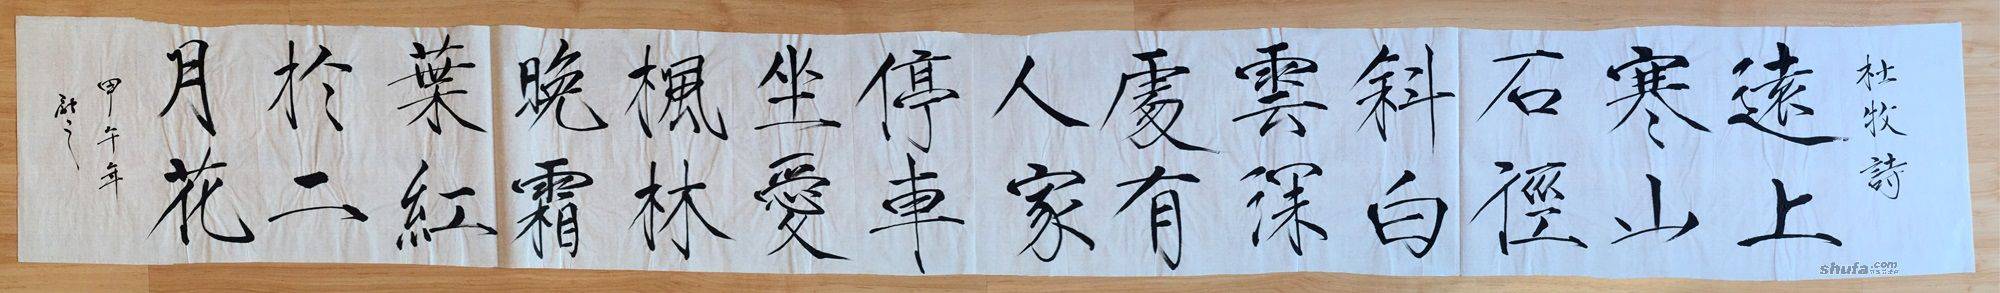 杜牧詩
遠上
寒山
石徑
斜白
雲深
處有
人家
停車
坐愛
楓林
晚霜
葉紅
於二
月花
甲午年
shufa.com